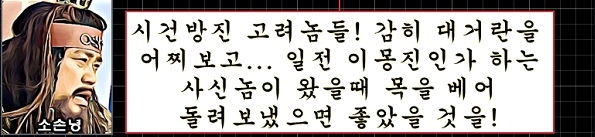 시건방진 고려놈들! 감히 대거란을
어찌보고... 일전 이몽진인가 하는
사신놈이 왔을때 목을 베어
돌려보냈으면 좋았을 것을!
소손녕